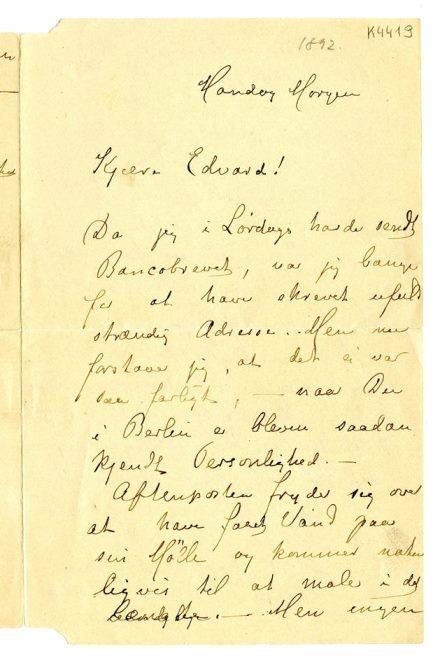 1892.
K4419
Mandag Morgen
Kjære Edvard!
Da jeg i Lørdags havde sendt
Bancobrevet, var jeg bange
for at have skrevet ufuld
stændig Adresse. Men nu
forstaar jeg, at det ei var
saa farligt, – naar Du
i Berlin er bleven saadan
kjendt Personlighed. –
Aftenposten fryder sig over
at have faaet Vand paa
sin Mölle og kommer natur
ligvis til at male i det
– Men ingen